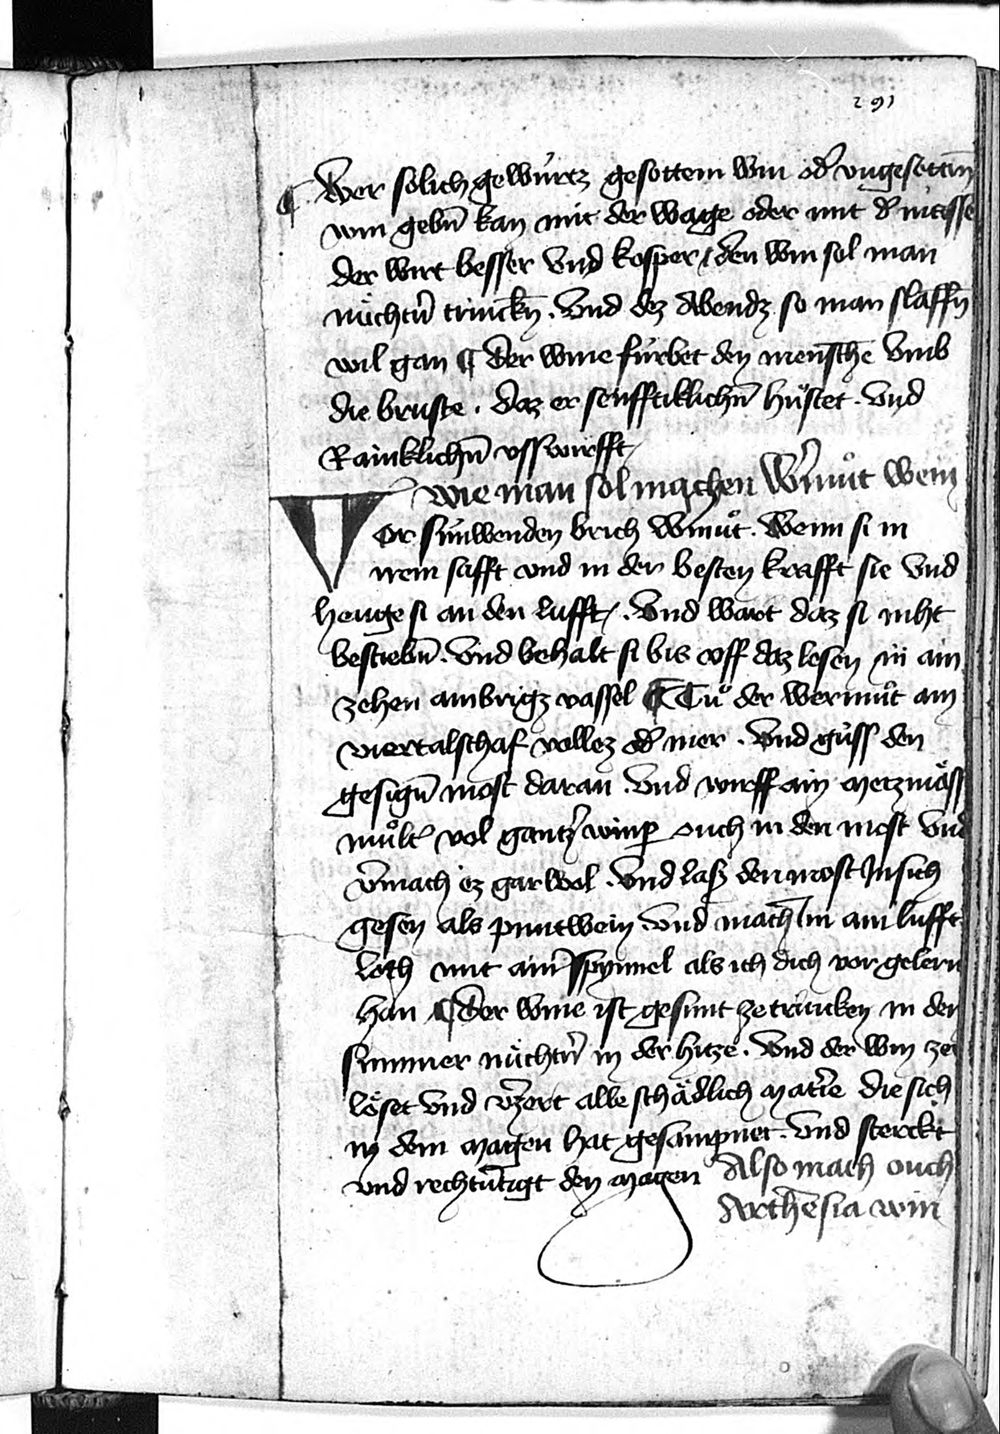 291
¶ Wer solich gewürcz gesottem win od͛ vngesottin̄
win gebn̄ kan mit der wage oder mit d͛ masse
der wirt besser vnd kosper / den win sol man
nuͤchtn̄ trincky̅ . vnd dez abendz so man slaffn̄
wil gan ¶ der wine fúrbet den mensche̅ vmb
die bruste . daz er senfftiklichn̄ huͦstet . vnd
Rainklichn̄ vsswirfft
wie man sol machen W͛muͦt wein
Vor sunwenden brich w͛muͦt . wenn si in
irem safft vnd in der besten krafft sie vnd
henge si an den lufft / . vnd wart daz si niht
bestiebn̄ . vnd behalt si bis vff daz lesen in ain
zehen ambrigz vassel ¶ Tuͦ der wermuͦt ain
viertalschaf vollez od͛ mer . vnd guͤss den
gesign̄ most daran . vnd wirff ain meczmaͤss
muͦlt͛ vol gantz͛ winp͛ ouch in den most vnd
v͛mach ez gar wol . vnd laß den most In sich
gesen als pimtwein vnd mach Im ain lufft
loch mit aim͛ spynnel als ich dich vor gelern
han ¶ der wine ist gesunt ze trincken in den
summer nuͤchtn̄ in der hitze . vnd der win zer
loͤset vnd v͛zert alle schaͤdlich mat͛ie die sich
in dem magen hat gesampnet . vnd sterckt
vnd rechtu̅tigt den magen Also mach ouch
Arthe̅sia win